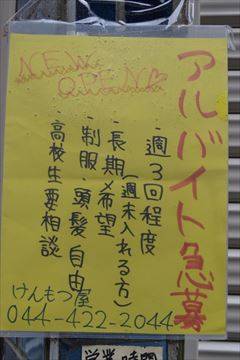 NEW
OPEN♡
アルバイト急募
・週3回程度
(週末入れる方)
・長期希望
・制服・頭髪自由
・高校生要相談
けんもつ屋
044-422-2044
営業時間